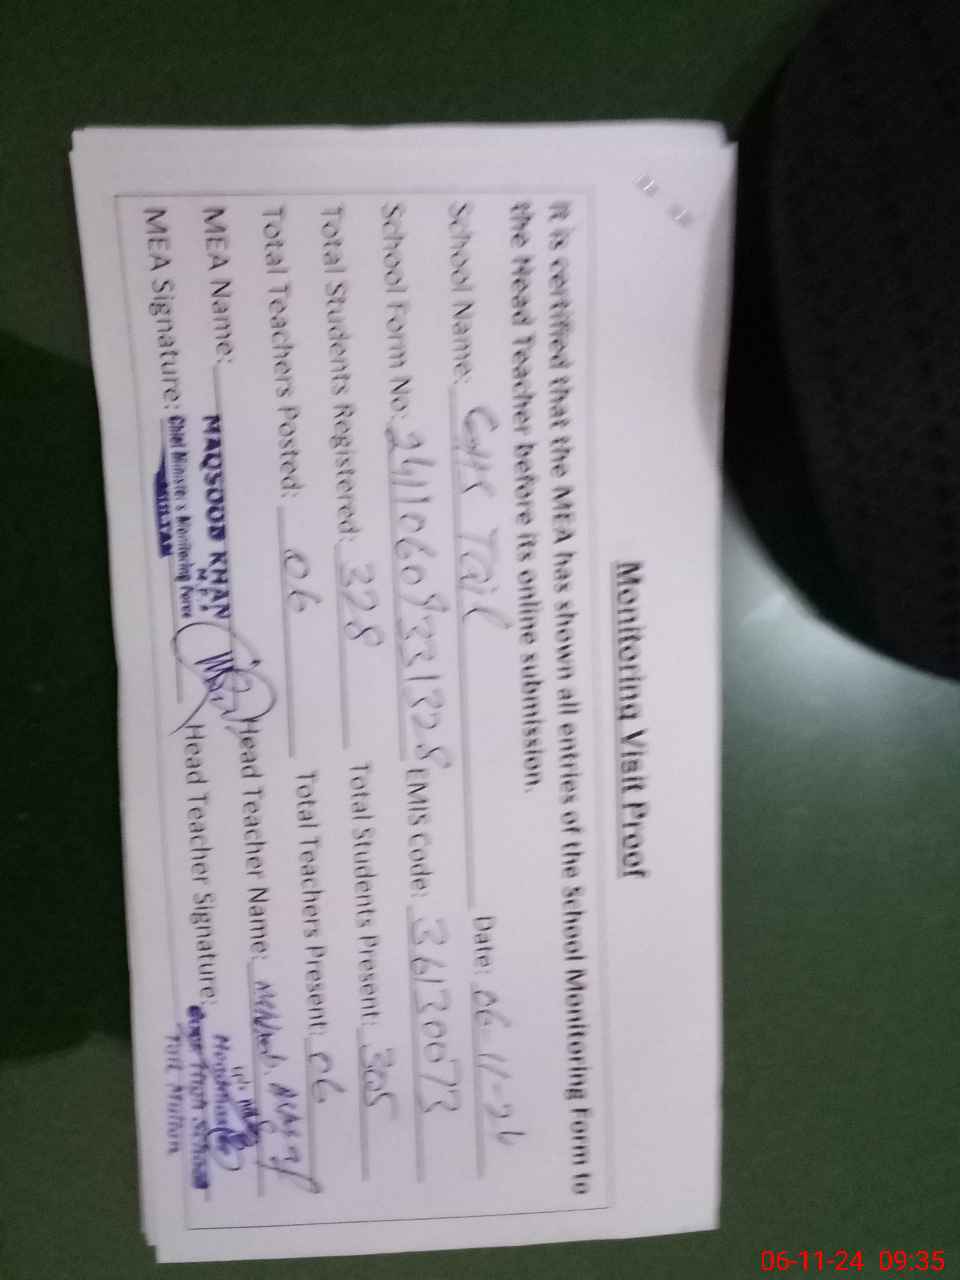 Monitoring Visit Proof
It is certified that the MEA has shown all entries of the School Monitoring Form to
the Head Teacher before its online submission.
School Name: GHS Tail Date: 06-11-24
School Form No: 24110609331328 EMIS Code: 36130073
Total Students Registered: 328 Total Students Present: 305
Total Teachers Posted: 06 Total Teachers Present: 06
MEA Name: MAQSOOD KHAN Head Teacher Name:
MEA Signature: Chief Minister's Monitoring Force Head Teacher Signature:
MULTAN
Headmaster
Govt High School
Tail Multan
06-11-24 09:35